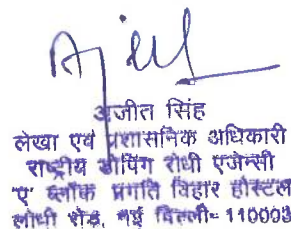 अजीत सिंह
लेखा एवं प्रशासनिक अधिकारी
राष्ट्रीय डोपिंग रोधी एजेन्सी
'ए' ब्लॉक प्रगति विहार हौस्टल
लोधी रोड, नई दिल्ली- 110003